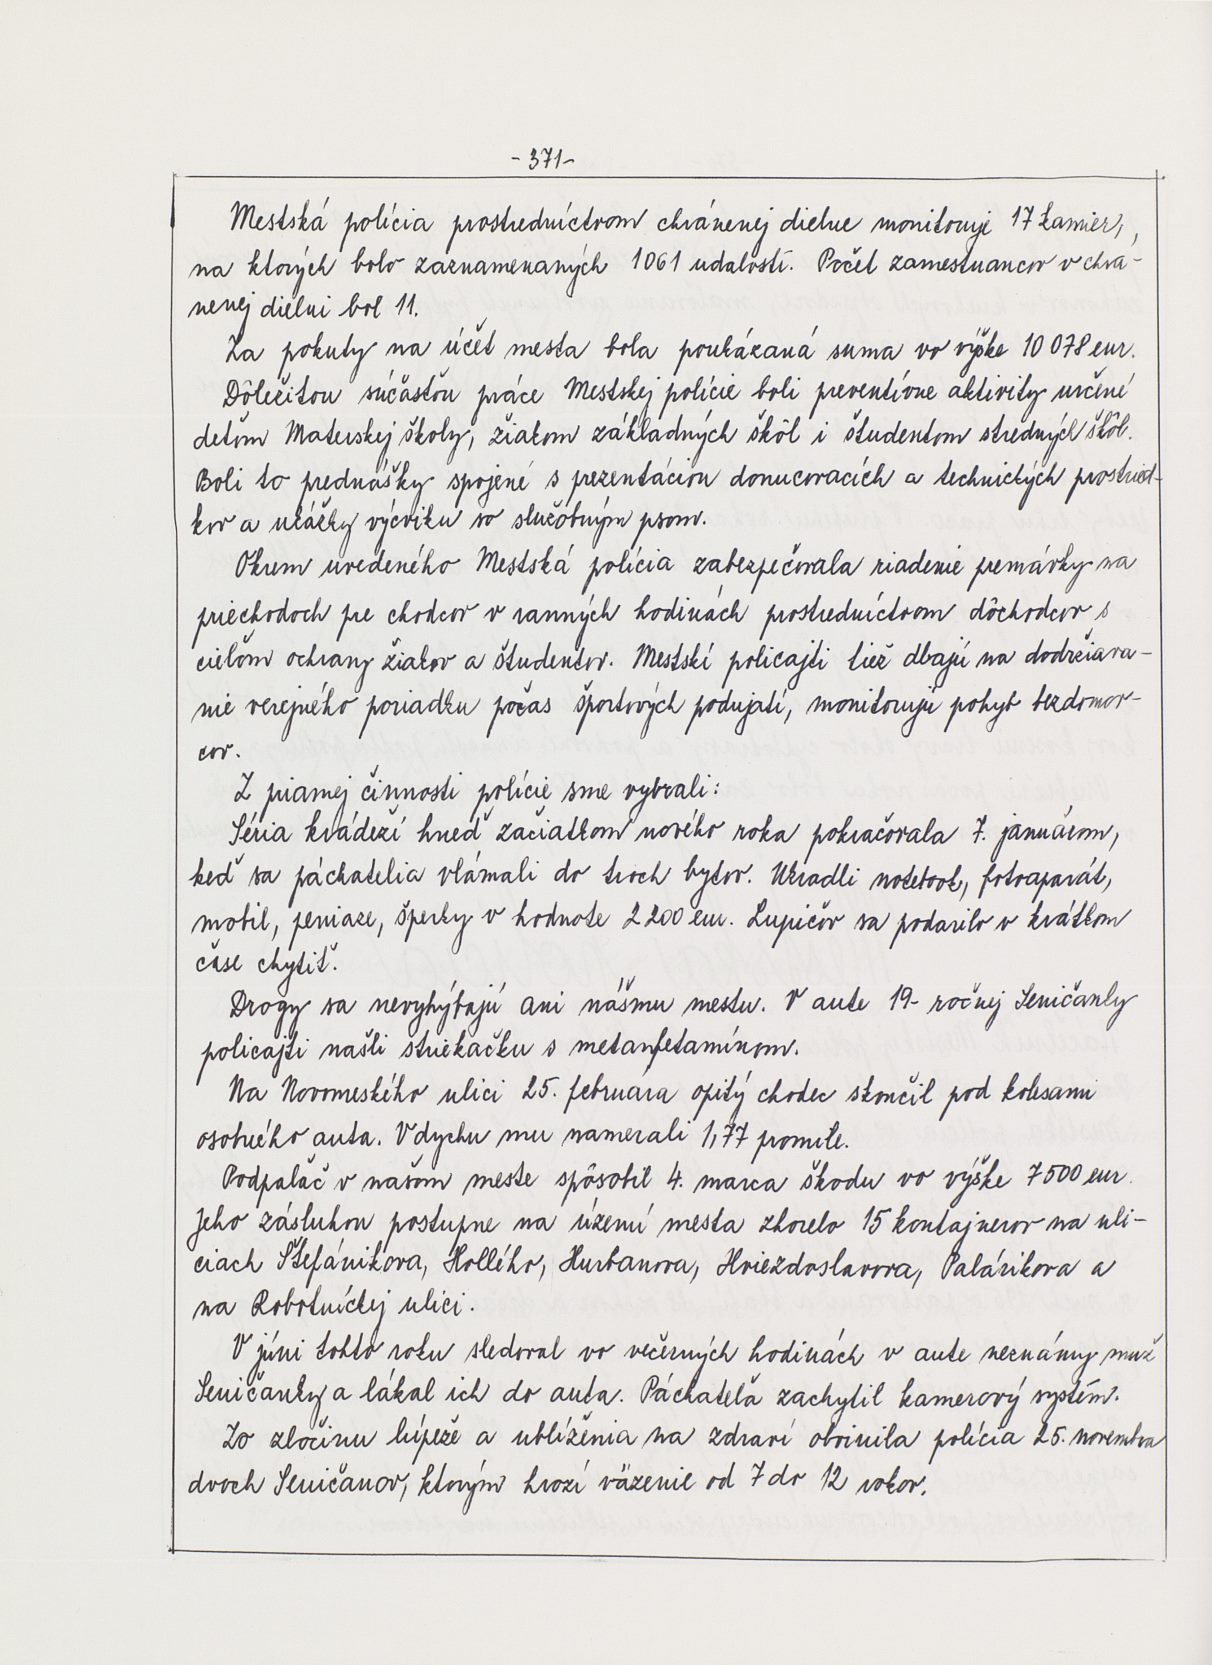 - 371 -
Mestská polícia prostredníctvom chránenej dielne monitoruje 17 kamier,
na ktorých bolo zaznamenaných 1061 udalostí. Počet zamestnancov v chrá-
nenej dielni bol 11.
Za pokuty na účet mesta bola poukázaná suma vo výške 10 078 eur.
Dôležitou súčasťou práce Mestskej polície boli preventívne aktivity určené
deťom Materskej školy, žiakom základných škôl i študentom stredných škôl.
Boli to prednášky spojené s prezentáciou donucovacích a technických prostried-
kov a ukážky výcviku so služobným psom.
Okrem uvedeného Mestská polícia zabezpečovala riadenie premávky na
priechodoch pre chodcov v ranných hodinách prostredníctvom dôchodcov s
cieľom ochrany žiakov a študentov. Mestskí policajti tiež dbajú na dodržiava-
nie verejného poriadku počas športových podujatí, monitorujú pohyb bezdomov-
cov.
Z priamej činnosti polície sme vybrali:
Séria krádeží hneď začiatkom nového roka pokračovala 7. januárom,
keď sa páchatelia vlámali do troch bytov. Ukradli notebook, fotoaparát,
mobil, peniaze, šperky v hodnote 2 200 eur. Lupičov sa podarilo v krátkom
čase chytiť.
Drogy sa nevyhýbajú ani nášmu mestu. V aute 19-ročnej Seničanky
policajti našli striekačku s metamfetamínom.
Na Novomeského ulici 25. februára opitý chodec skončil pod kolesami
osobného auta. V dychu mu namerali 1,77 promile.
Podpaľač v našom meste spôsobil 4. marca škodu vo výške 7500 eur.
Jeho zásluhou postupne na území mesta zhorelo 15 kontajnerov na uli-
ciach Štefánikova, Hollého, Hurbanova, Hviezdoslavova, Palárikova a
na Robotníckej ulici.
V júni tohto roku sledoval vo večerných hodinách v aute neznámy muž
Seničanky a lákal ich do auta. Páchateľa zachytil kamerový systém.
Zo zločinu lúpeže a ublíženia na zdraví obvinila polícia 25. novembra
dvoch Seničanov, ktorým hrozí väzenie od 7 do 12 rokov.